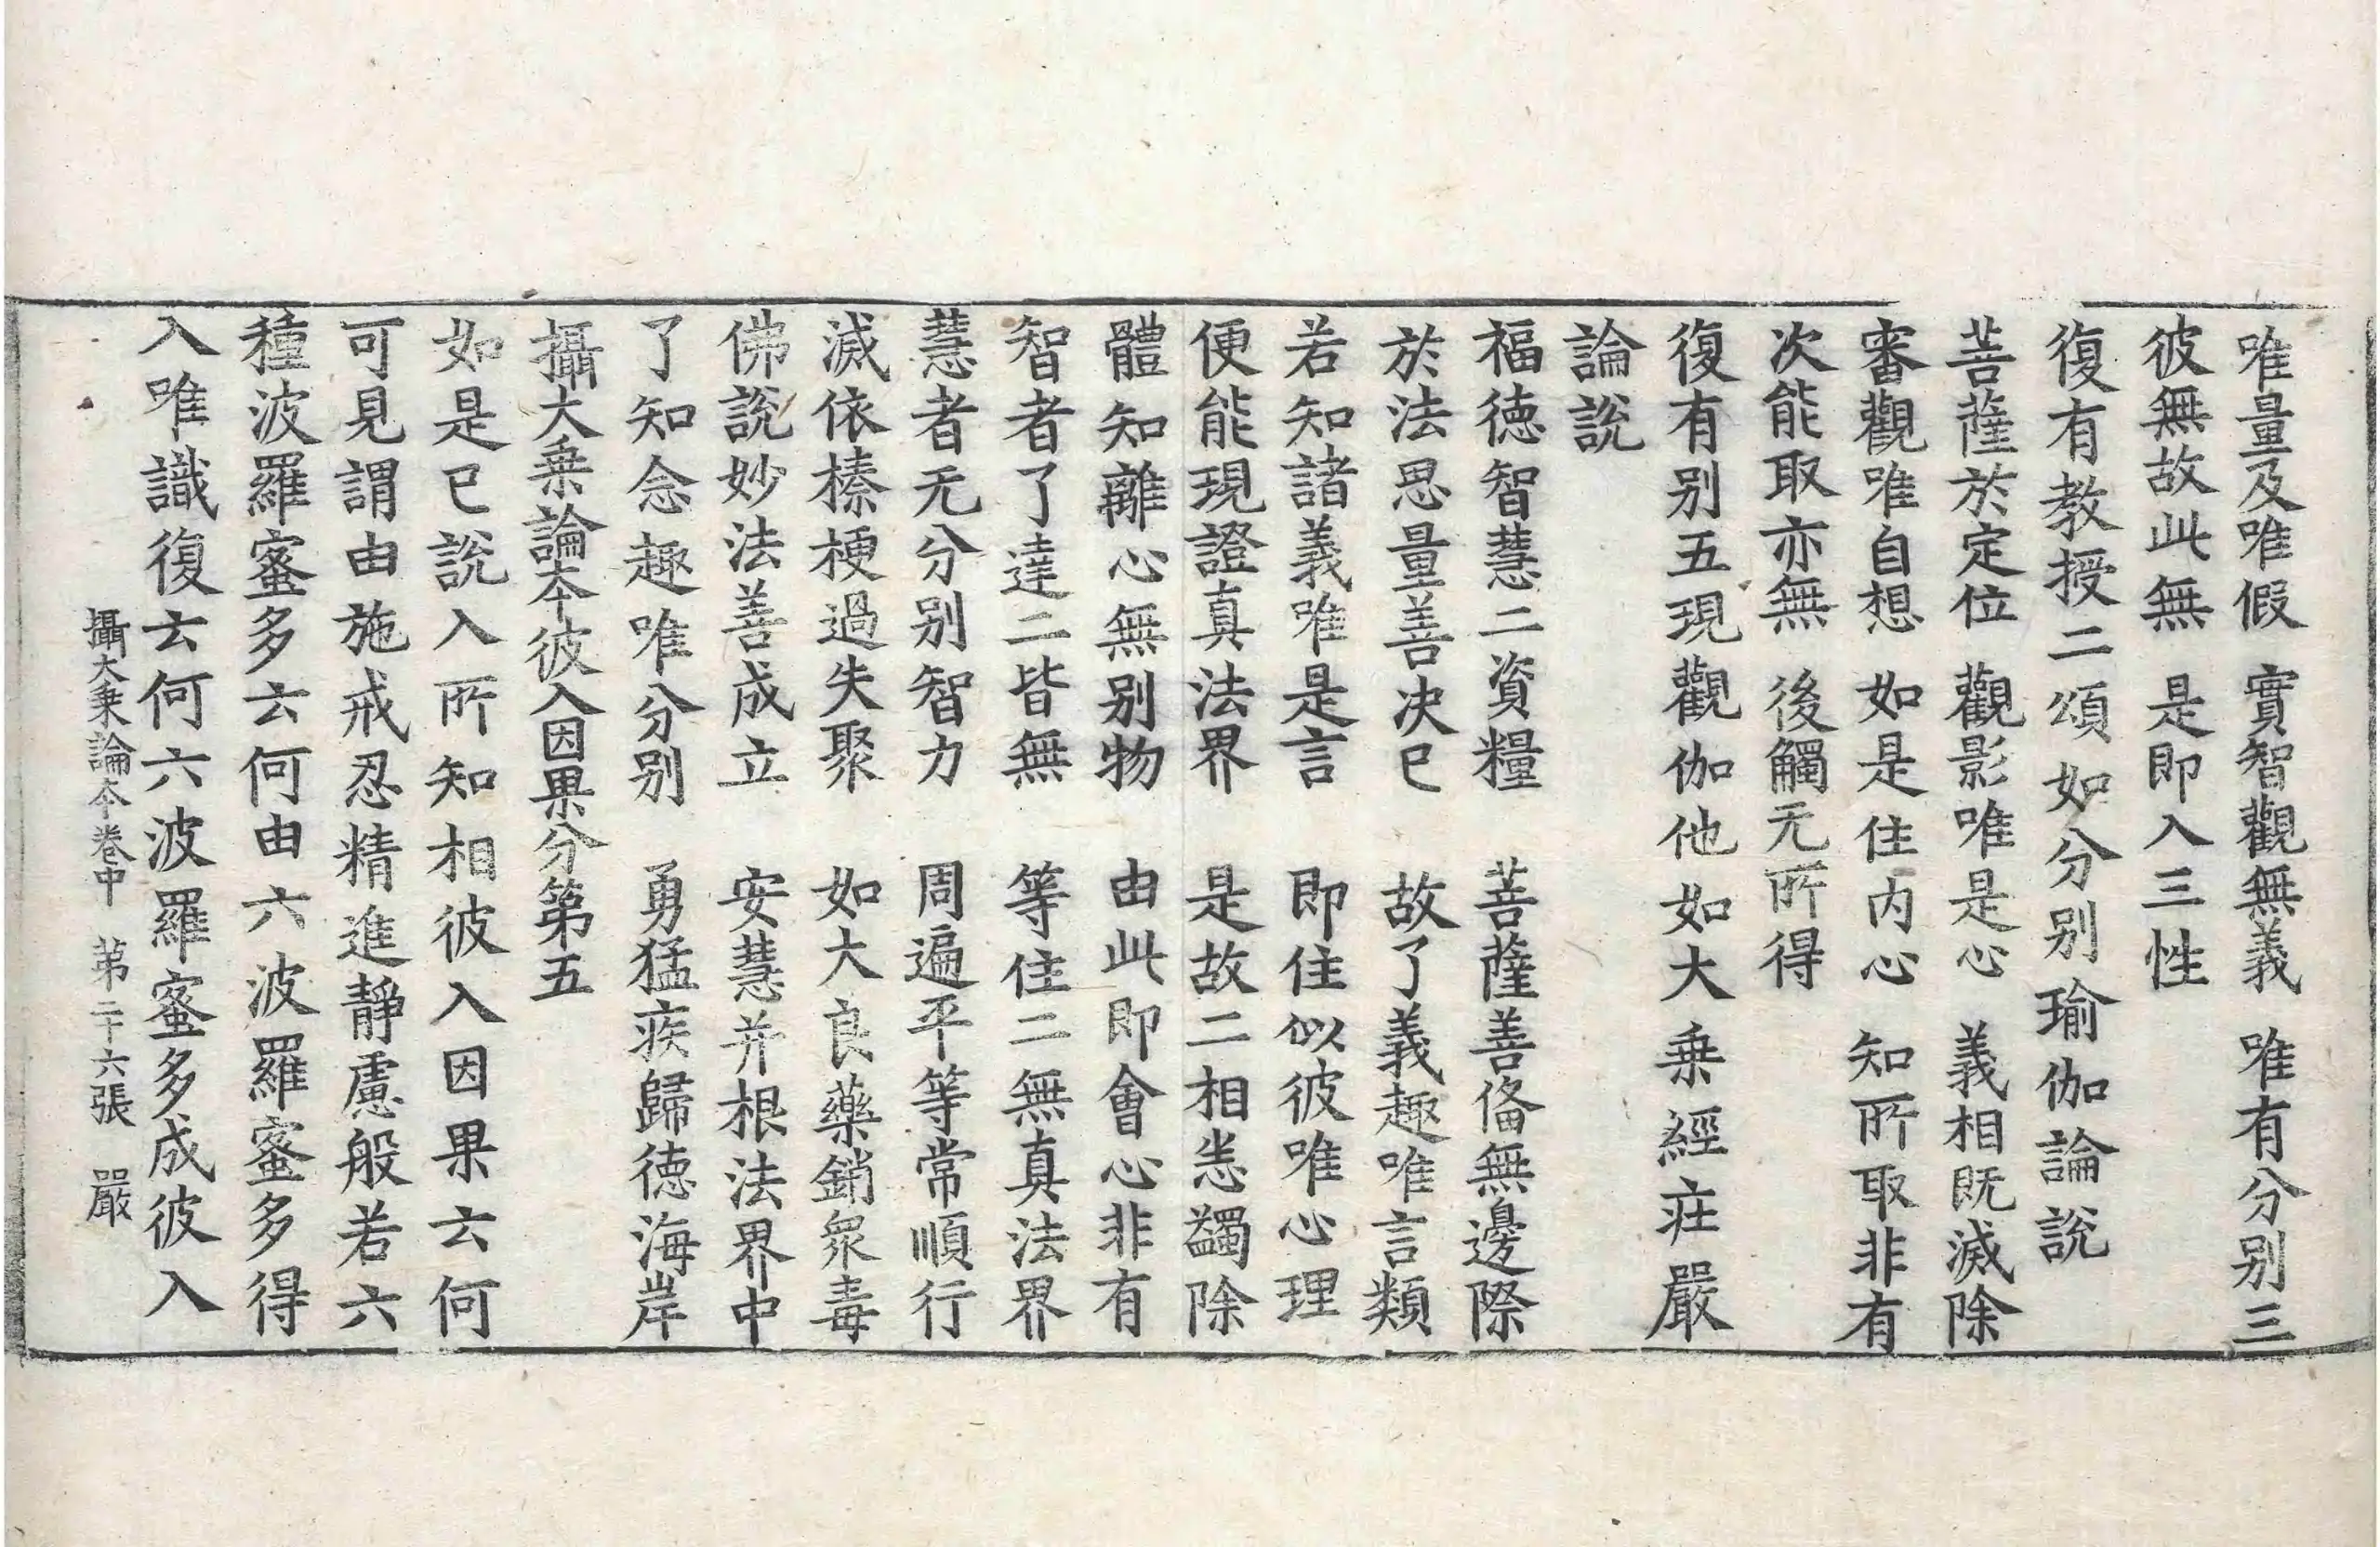 唯量及唯假　實智觀無義　唯有分别三
彼無故此無　是即入三性
復有教授二頌如分别瑜伽論說
菩薩於定位　觀影唯是心　義相既滅除
審觀唯自想　如是住内心　知所取非有
次能取亦無　後觸无所得
復有别五現觀伽他如大乗經莊嚴
論說
福德智慧二資糧　菩薩善俻無邊際
於法思量善决已　故了義趣唯言類
若知諸義唯是言　即住似彼唯心理
便能現證真法界　是故二相悉蠲除
體知離心無别物　由此即會心非有
智者了達二皆無　等住二無真法界
慧者无分别智力　周遍平等常順行
滅依榛梗過失聚　如大良藥銷衆毒
佛說妙法善成立　安慧并根法界中
了知念趣唯分别　勇猛疾歸德海岸
攝大乗論本彼入因果分第五
如是已說入所知相彼入因果云何
可見謂由施戒忍精進静慮般若六
種波羅蜜多云何由六波羅蜜多得
入唯識復云何六波羅蜜多成彼入
攝大乗論本卷中　苐二十六張　嚴